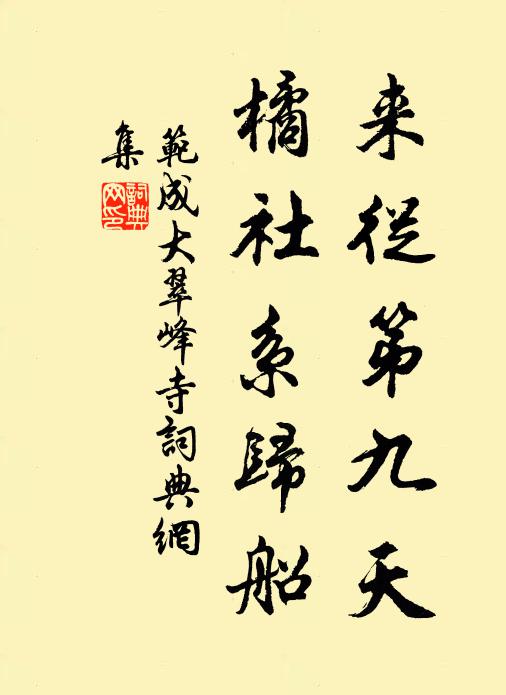 来從第九天
橘社系歸船
範成大翠峰寺詞典網
集
詞典
网印